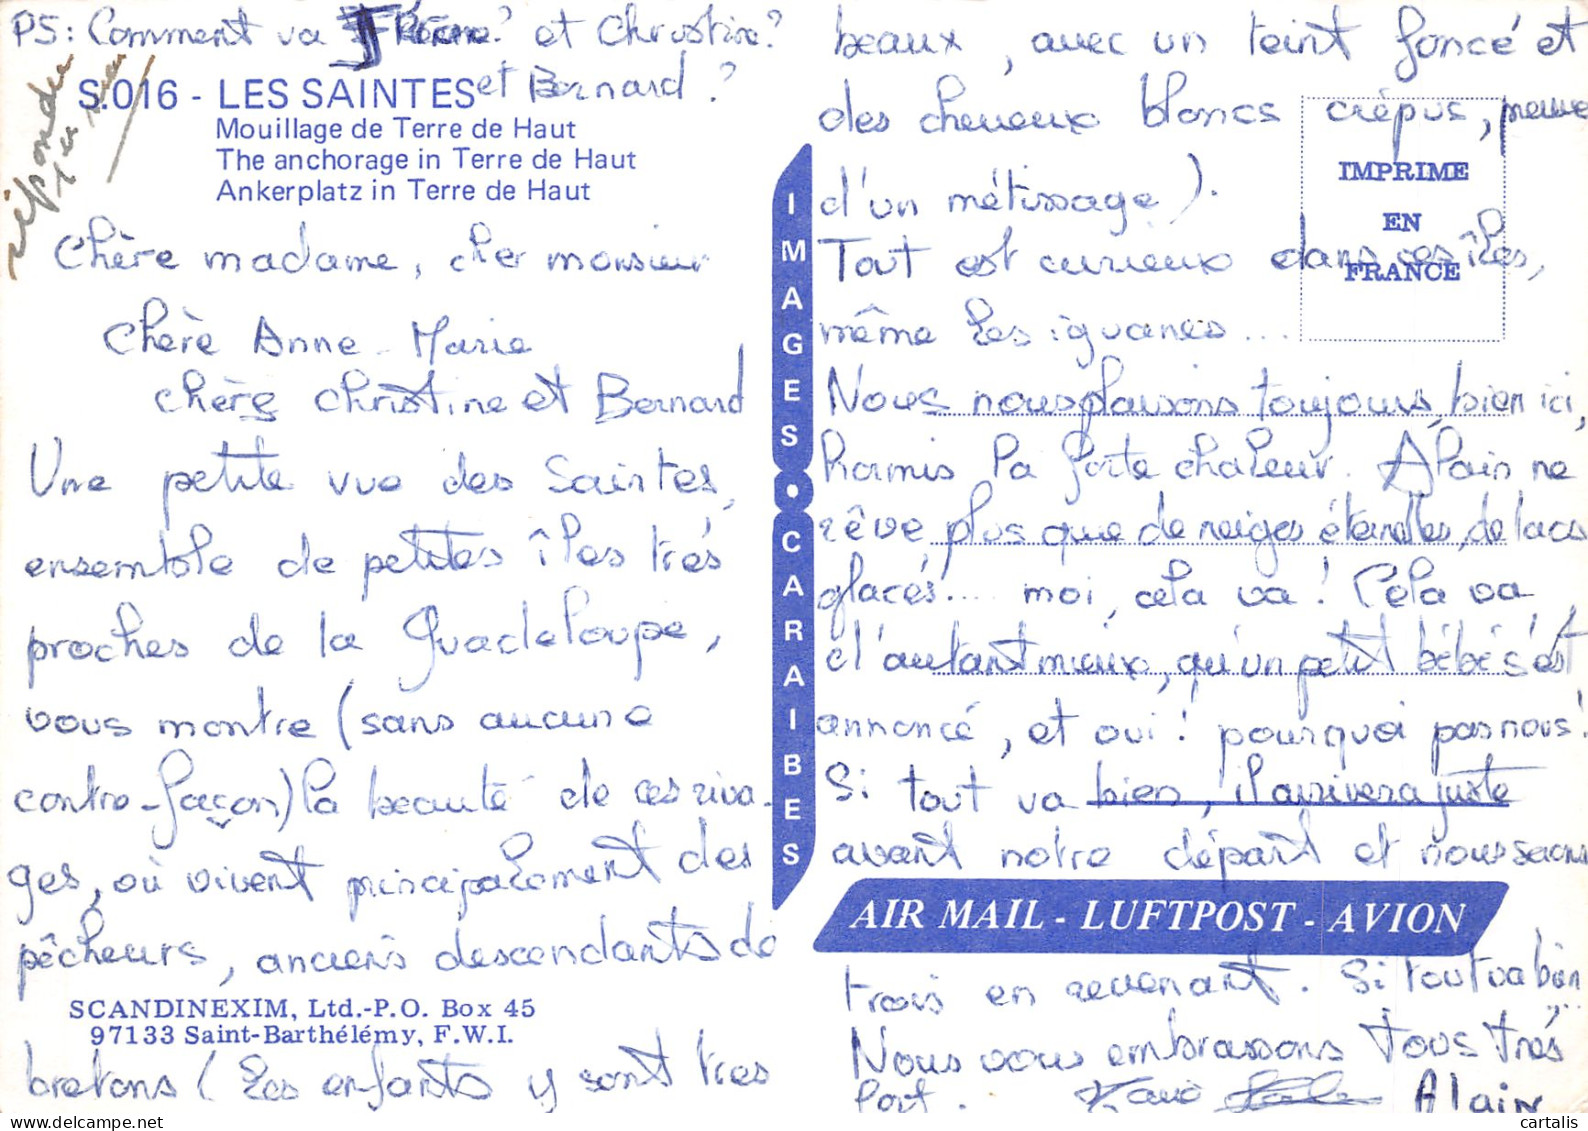 PS: Comment va ? et Christine?
et Bernard ?
répondu
S.016 - LES SAINTES
Mouillage de Terre de Haut
The anchorage in Terre de Haut
Ankerplatz in Terre de Haut
Chère madame, cher monsieur
Chère Anne-Marie
chers Christine et Bernard
Une petite vue des Saintes,
ensemble de petites îles très
proches de la Guadeloupe,
vous montre (sans aucune
contre-façon) la beauté de ces riva-
ges, où vivent principalement des
pêcheurs, anciens descendants de
SCANDINEXIM, Ltd.-P.O. Box 45
97133 Saint-Barthélémy, F.W.I.
bretons (Les enfants y sont très
IMAGES • CARAIBES
beaux, avec un teint foncé et
des cheveux blancs crépus, preuve
d'un métissage).
Tout est curieux dans ces îles,
même les iguanes ...
IMPRIME
EN
FRANCE
Nous nous plaisons toujours bien ici,
hormis la forte chaleur. Alain ne
rêve plus que de neiges éternelles, de lacs
glacés.... moi, cela va ! Cela va
d'autant mieux, qu'un petit bébé s'est
annoncé, et oui ! pourquoi pas nous !
Si tout va bien, il arrivera juste
avant notre départ et nous serons
AIR MAIL - LUFTPOST - AVION
trois en revenant. Si tout va bien ...
Nous vous embrassons tous très
fort. Alain